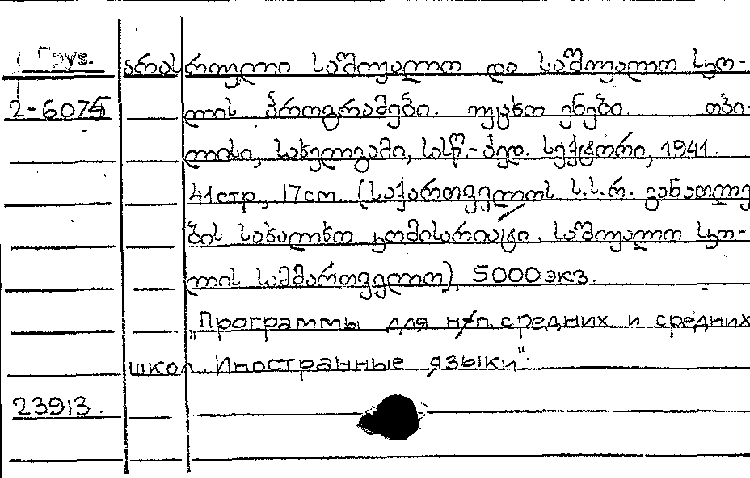 Груз.
არასრული საშუალო და საშუალო სკო-
2-6075
ლის პროგრამები. უცხო ენები. თბი-
ლისი, სახელგამი, სას.-პედ. სექტორი, 1941.
41стр., 17см. (საქართველოს ს.ს.რ. განათლე
ბის სახალხო კომისარიატი. საშუალო სკო-
ლის სამმართველო) 5000экз.
"Программы для н/п. средних и средних
школ. Иностранные языки".
23913.